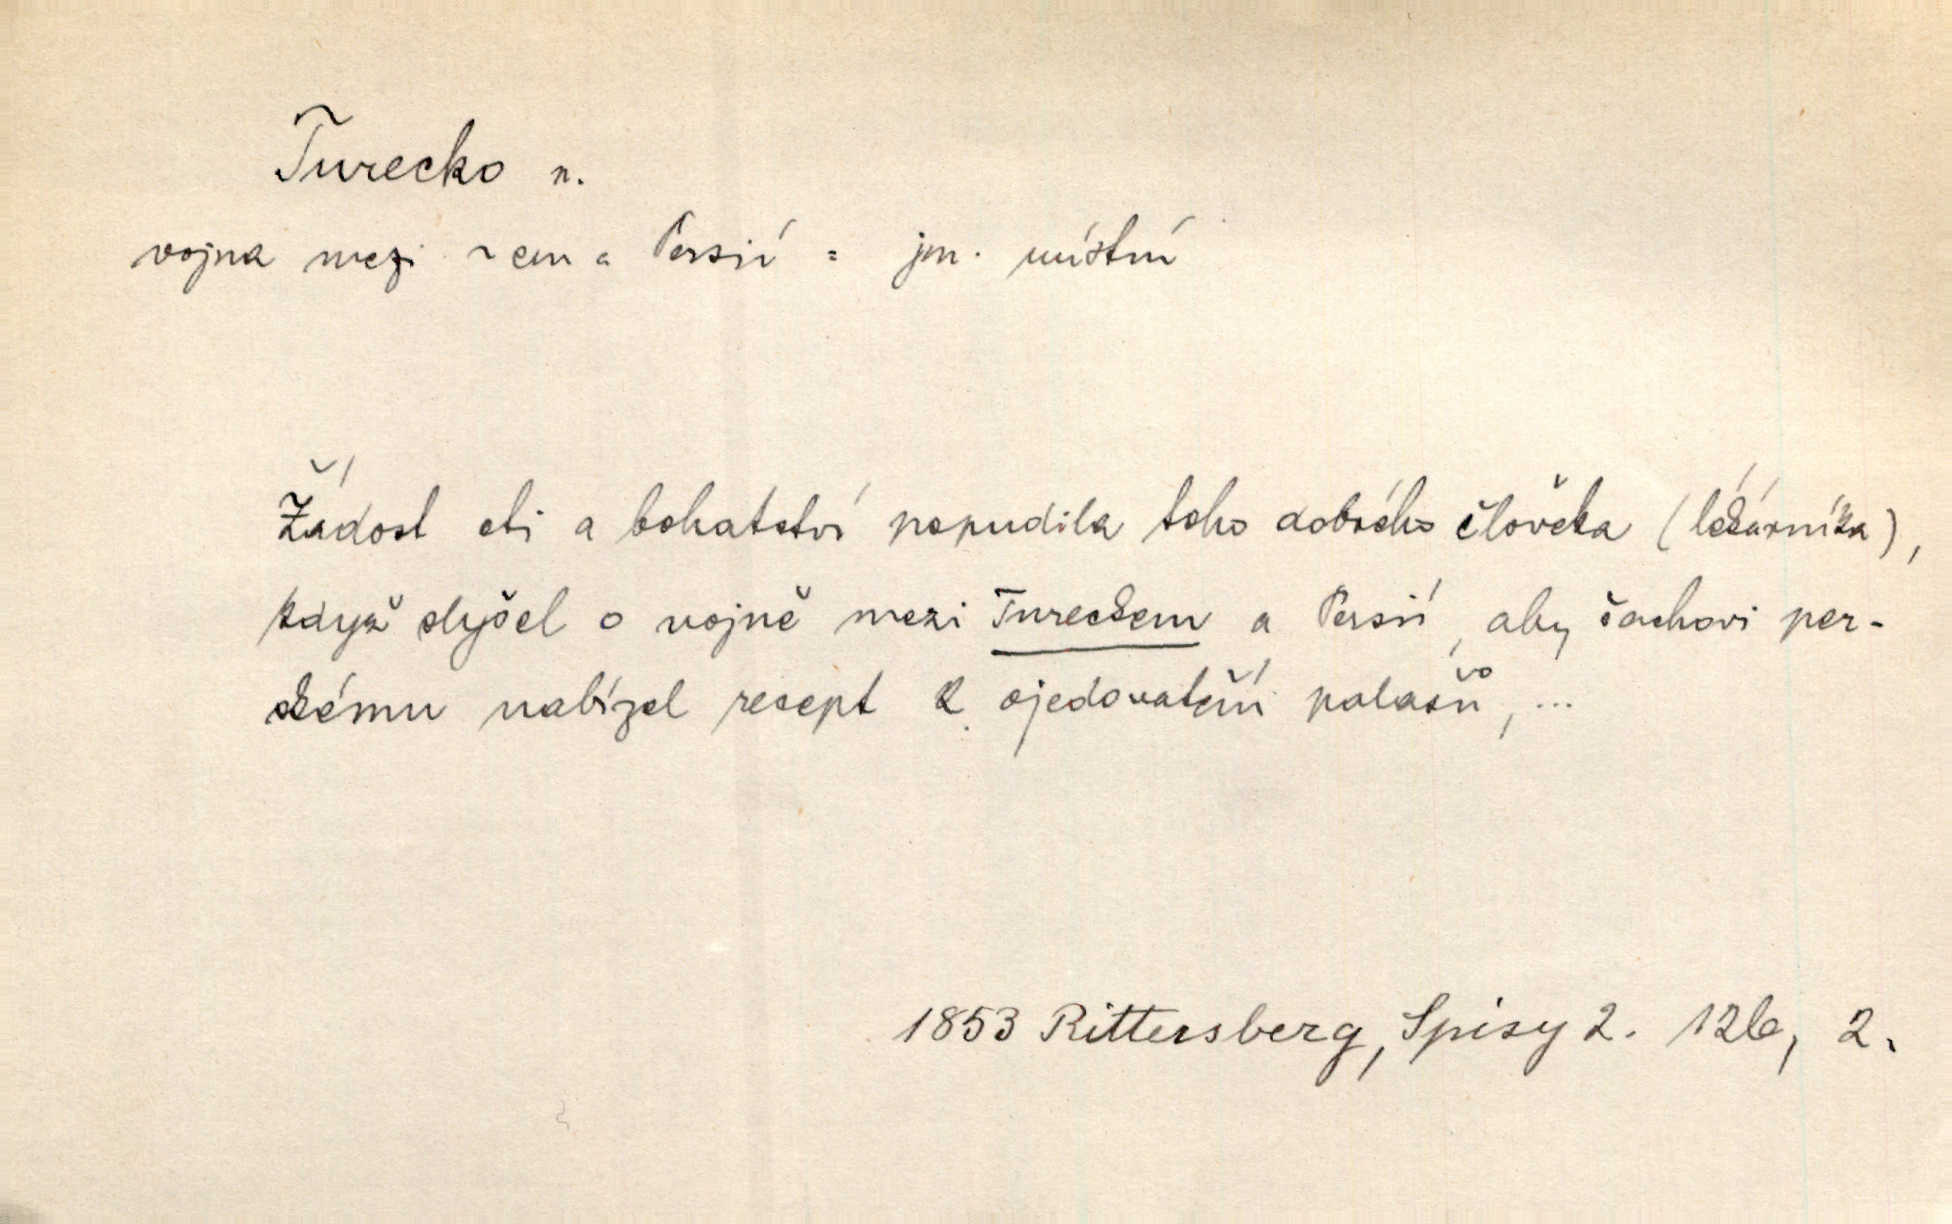 Turecko n.
vojna mezi ~em a Persií = jm. místní
Žádost cti a bohatství popudila toho dobrého člověka (lékárníka),
když slyšel o vojně mezi Tureckem a Persií, aby šachovi per-
skému nabízel recept k ojedovatění palašů, ...
1853 Rittersberg, Spisy 2. 126, 2.